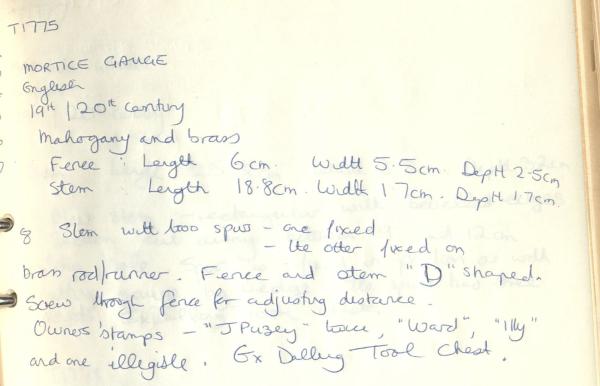 T1775
MORTICE GAUGE
English
19th / 20th century
Mahogany and brass
Fence : Length 6cm. Width 5.5cm. Depth 2.5cm
Stem Length 18.8cm. Width 1.7cm. Depth 1.7cm.
Stem with two spurs - one fixed
- the other fixed on
brass rod/runner. Fence and stem "D" shaped.
Screw through fence for adjusting distance.
Owners stamps - "J Puzey" twice, "Ward", "Illy"
and one illegible. Ex Tool Chest.